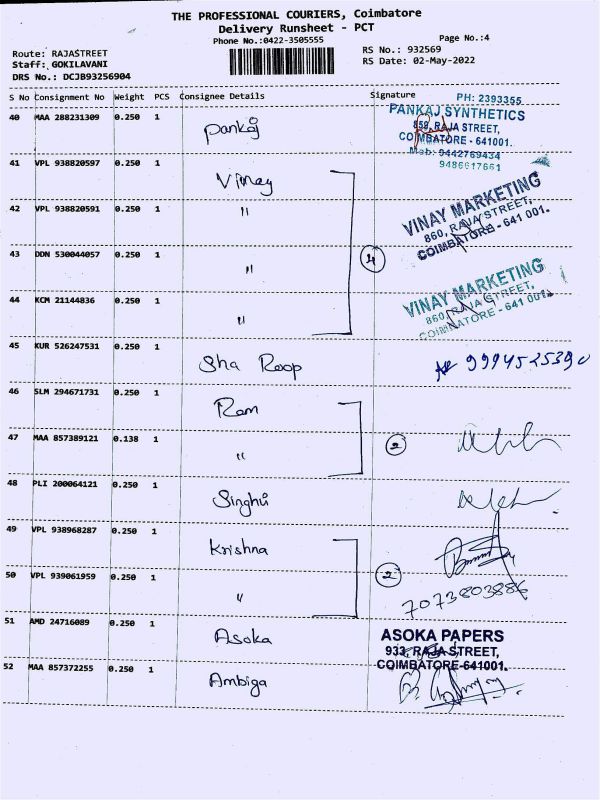 THE PROFESSIONAL COURIERS, Coimbatore
Delivery Runsheet - PCT
Phone No.:0422-3505555
Page No.:4
Route: RAJASTREET
RS No.: 932569
Staff: GOKILAVANI
RS Date: 02-May-2022
DRS No.: DCJB93256904
S No Consignment No Weight PCS Consignee Details Signature
PH: 2393355
40 MAA 288231309 0.250 1 Pankaj
PANKAJ SYNTHETICS
859, RAJA STREET,
COIMBATORE - 641001.
Mob: 9442769434
9486617661
41 VPL 938820597 0.250 1 Vinay
42 VPL 938820591 0.250 1 "
VINAY MARKETING
860, RAJA STREET,
COIMBATORE - 641 001.
43 DDN 530044057 0.250 1 "
4
44 KCM 21144836 0.250 1 "
VINAY MARKETING
860, RAJA STREET,
COIMBATORE - 641 001.
45 KUR 526247531 0.250 1 Sha Roop
9994525390
46 SLM 294671731 0.250 1 Ram
47 MAA 857389121 0.138 1 "
2
48 PLI 200064121 0.250 1 Singhu
49 VPL 938968287 0.250 1 Krishna
50 VPL 939061959 0.250 1 "
2
7073803886
51 AMD 24716089 0.250 1 Asoka
ASOKA PAPERS
933, RAJA STREET,
COIMBATORE-641001.
52 MAA 857372255 0.250 1 Ambiga